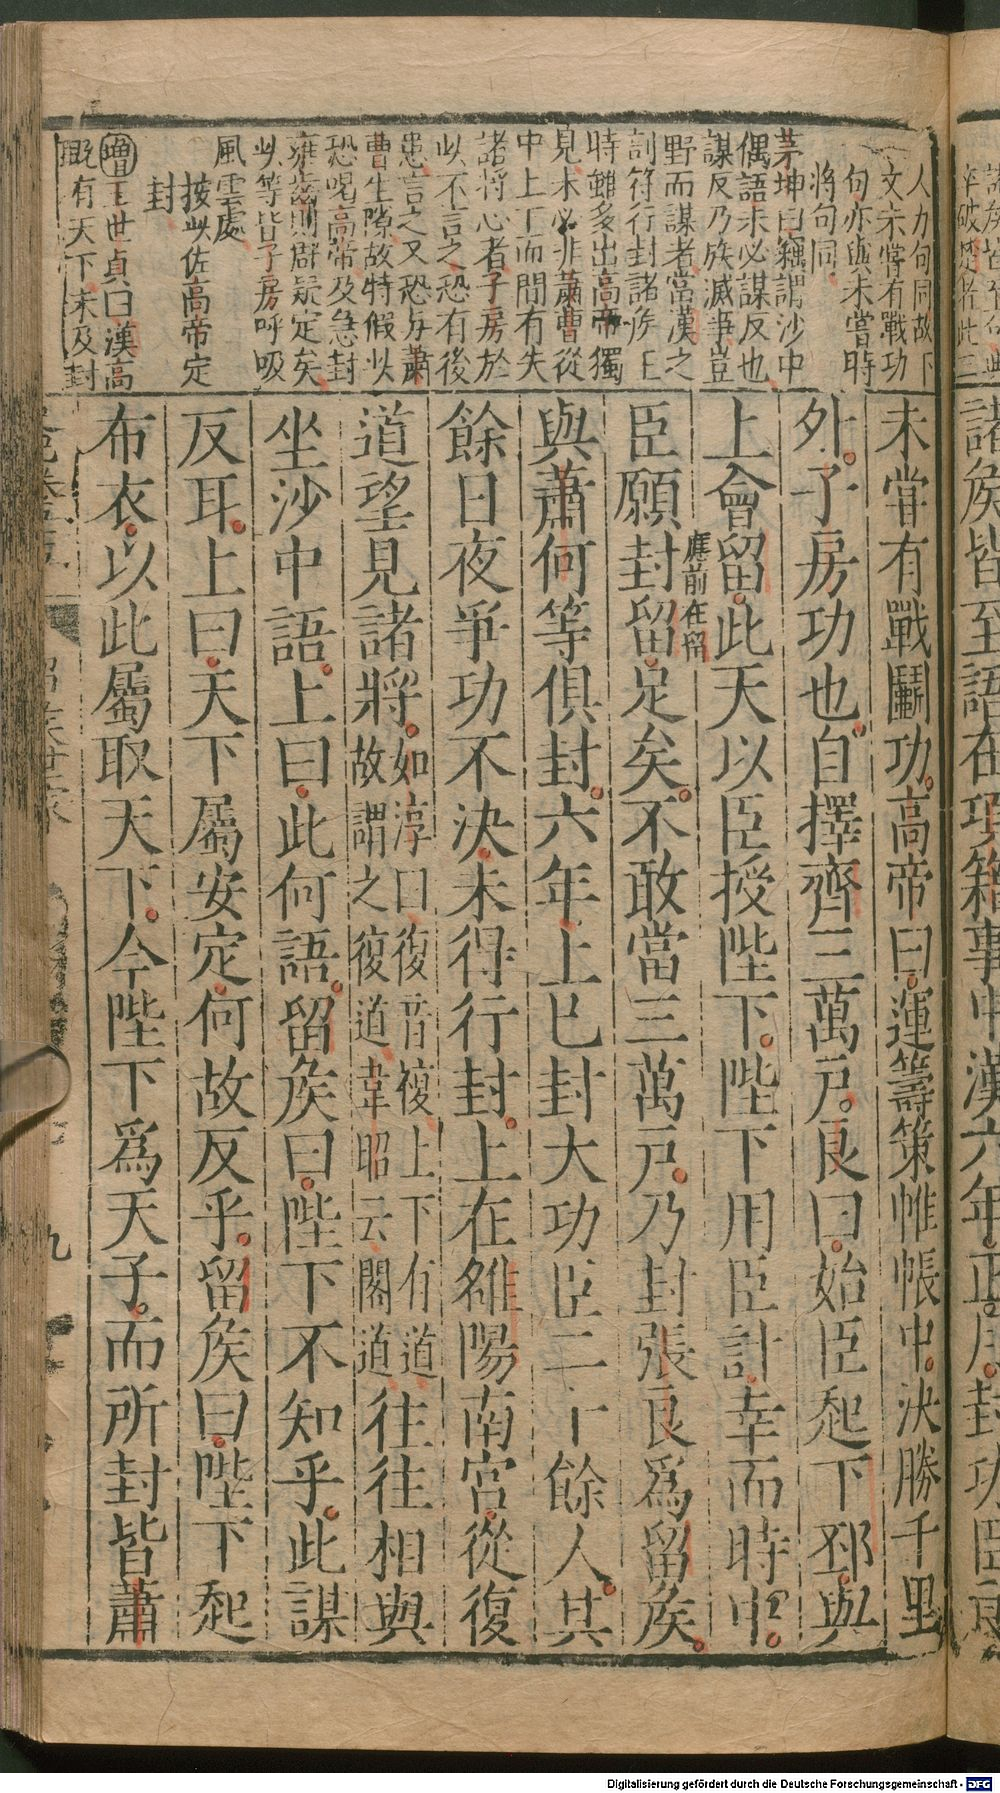 人力句同故下
文未嘗有戰功
句亦與未嘗時
將句同
茅坤曰竊謂沙中
偶語未必謀反也
謀反乃族滅事豈
野而謀者當漢之
剖符行封諸侯王
時雖多出高帝獨
見未必非蕭曹從
中上下而間有失
諸將心者子房於
此不言之恐有後
患言之又恐與蕭
曹生隙故特假此
恐喝高帝及急封
雍齒則群疑定矣
此等皆子房呼吸
風雲處
按此佐高帝定
封
增王世貞曰漢高
既有天下未及封
未嘗有戰鬭功高帝曰運籌策帷帳中決勝千里
外子房功也自擇齊三萬戶良曰始臣起下邳與
上會留此天以臣授陛下陛下用臣計幸而時中
應前在留
臣願封留足矣不敢當三萬戶乃封張良爲留侯
與蕭何等俱封六年上已封大功臣二十餘人其
餘日夜爭功不決未得行封上在雒陽南宮從復
道望見諸將如淳曰復音複上下有道故謂之復道韋昭云閣道往往相與
坐沙中語上曰此何語留侯曰陛下不知乎此謀
反耳上曰天下屬安定何故反乎留侯曰陛下起
布衣以此屬取天下今陛下爲天子而所封皆蕭
九
諸侯皆至語在項籍事中漢六年正月封功臣良
Digitalisierung gefördert durch die Deutsche Forschungsgemeinschaft - DFG